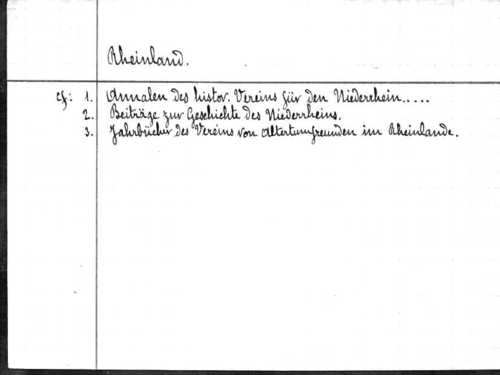 Rheinland.
cf: 1. Annalen des histor. Vereins für den Niederrhein.....
2. Beiträge zur Geschichte des Niederrheins.
3. Jahrbücher des Vereins von Altertumsfreunden im Rheinlande.